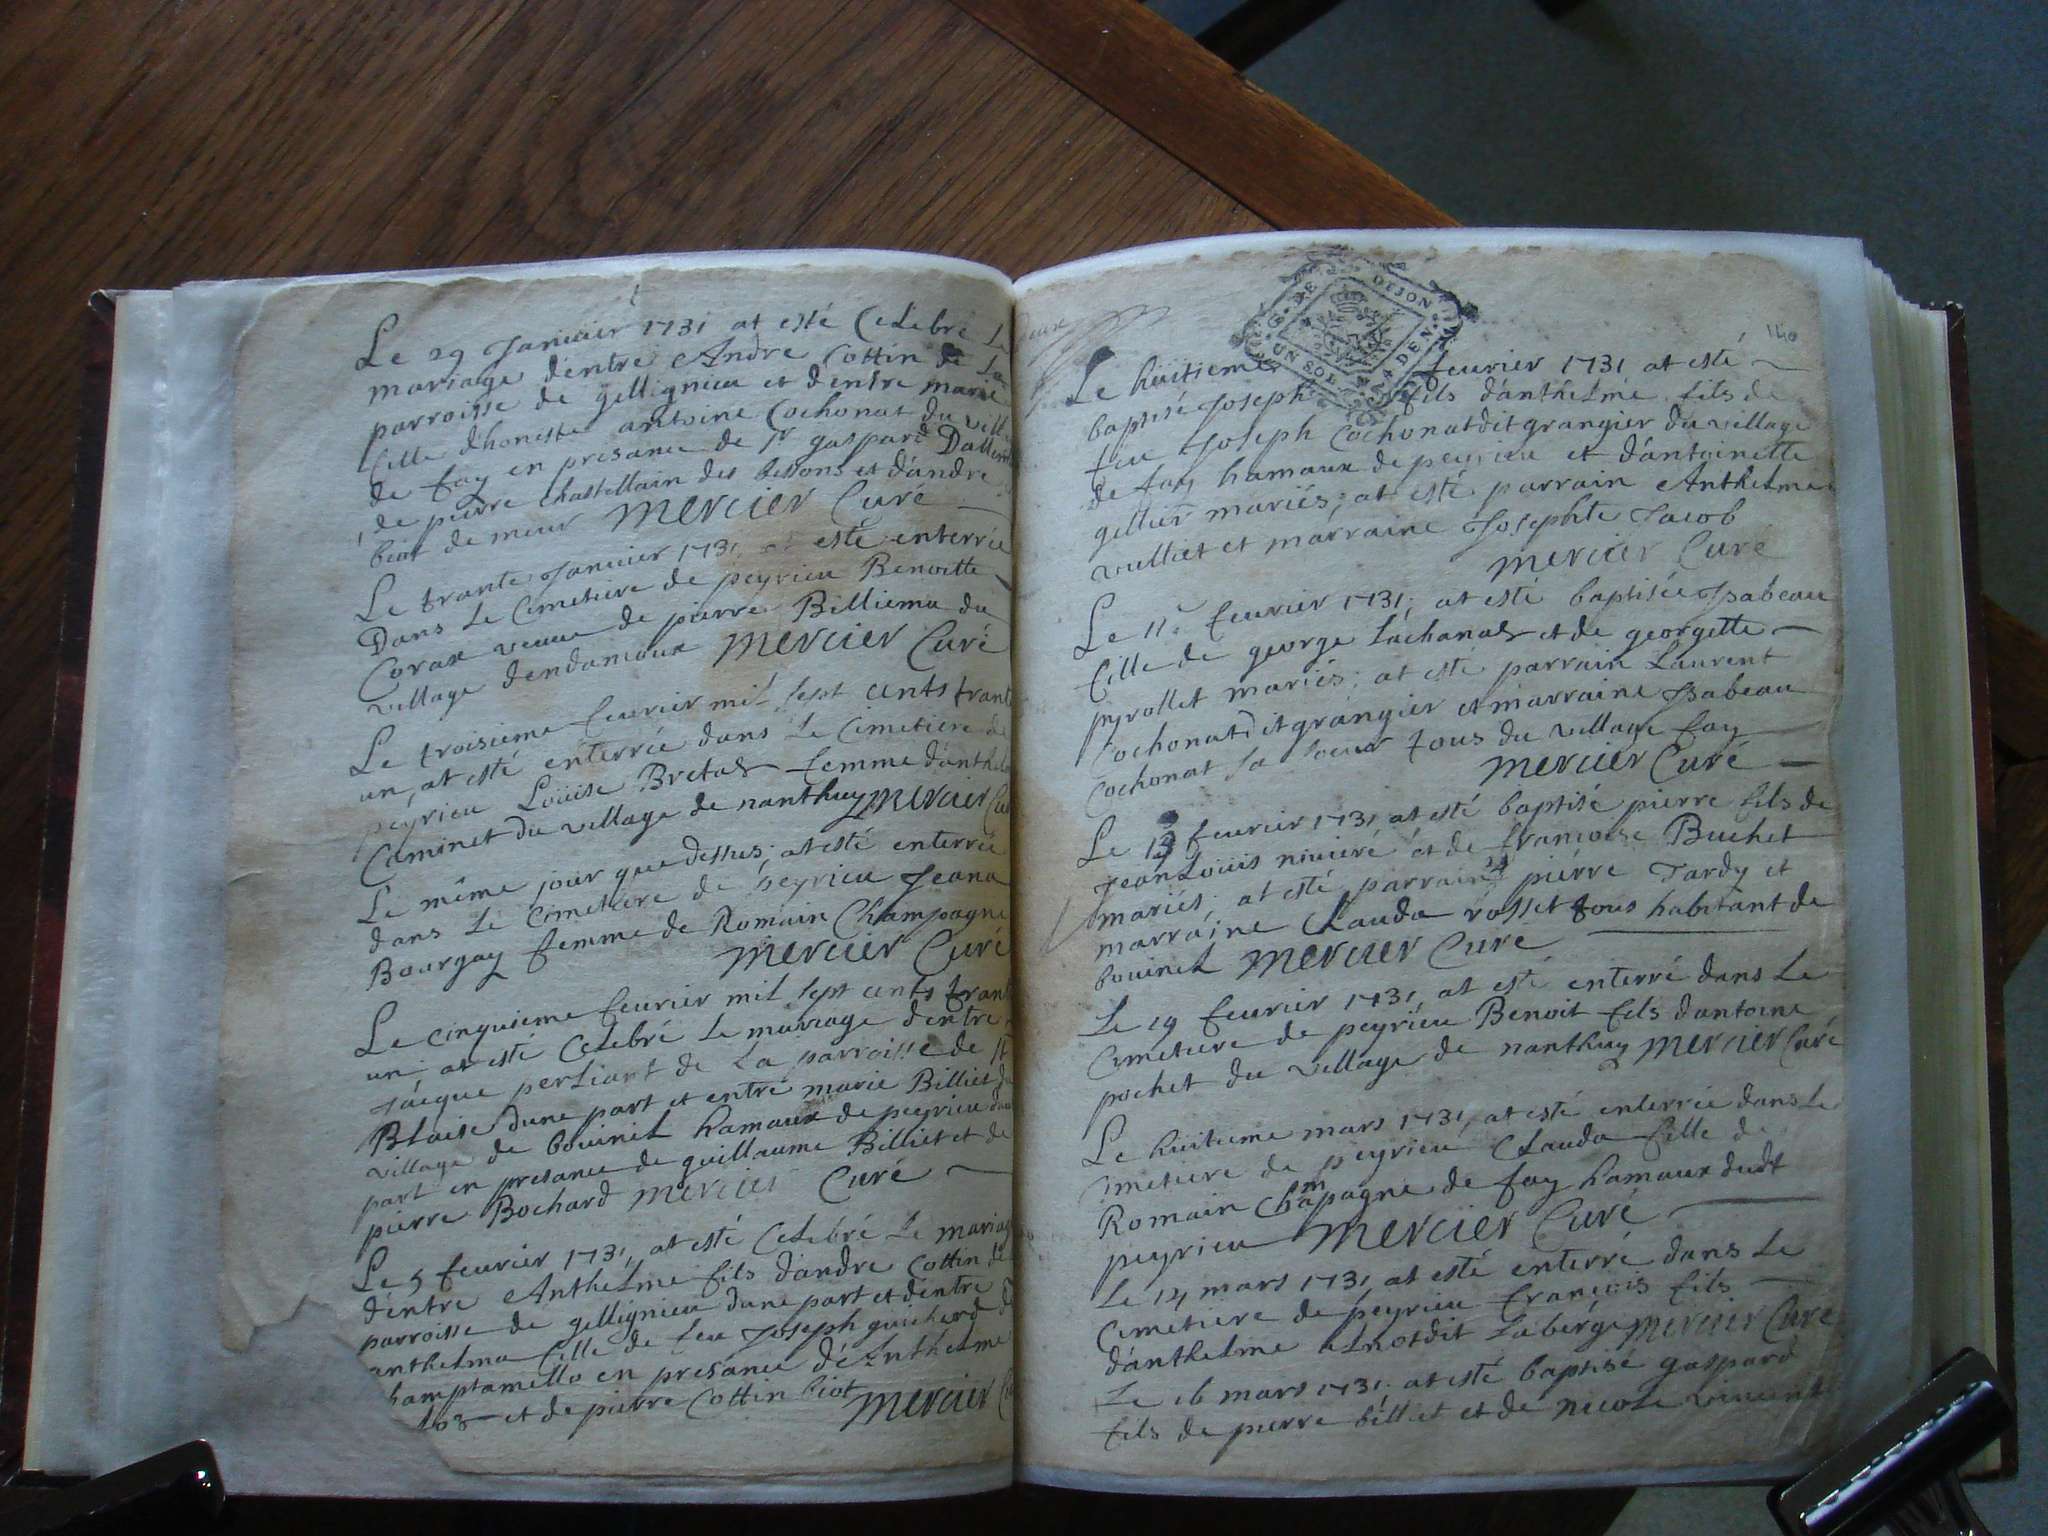 Le 29 Janvier 1731 at esté Celebré Le
mariage d'entre Andre Cottin de La
parroisse de gellignieu et d'entre marie
fille d'honeste antoine Cochonat du vill
de fay en presance de Sr gaspard
de pierre Chastellain des bessons et d'andre
biot de meur Mercier Curé
Le trante Janvier 1731 at esté enterrée
Dans Le Cimetiere de peyrieu Benoitte
Corax veuve de pierre Billiema du
village dendamoux Mercier Curé
Le troisieme fevrier mil sept cents trant
un, at esté enterrée dans Le Cimetiere de
peyrieu Loüise Bretas femme d'anthel
Caminet du village de nanthuy Mercier Cu
Le même jour que dessus; at esté enterrée
dans Le Cimetiere de peyrieu Jeana
Bourgay femme de Romain Champagne
Mercier Curé
Le cinquieme fevrier mil sept cents trant
un; at esté Celebré Le mariage d'entre
Jácque perliant de La parroisse de St
Blaise d'une part et entre marie Billiet du
village de bovinel hamaux de peyrieu d'au
part en presance de guillaume Billiet et de
pierre Bochard Mercier Curé
Le 5 fevrier 1731, at esté Celebré Le mariag
d'entre Anthelme fils d'andre Cottin de
parroisse de gellignieu d'une part et d'entre
anthelma fille de feu Joseph guicherd d
hamptamello en presance d'Anthelme
et de pierre Cottin biot Mercier C
G. DE DIJON
UN SOL 4 DEN.
140
Le huitieme fevrier 1731 at esté
baptisé Joseph fils d'anthelme fils de
feu Joseph Cochonat dit grangier du village
de fay hamaux de peyrieu et d'antoinette
gellier mariés; at esté parrain Anthelme
vulliet et marraine Josephte Jacob
Mercier Curé
Le 11e fevrier 1731; at esté baptisée Isabeau
fille de george Lachanas et de georgette
peyrollet mariés; at esté parrain Laurent
Cochonat dit grangier et marraine Isabeau
Cochonat sa soeur tous du village fay
Mercier Curé
Le 13 fevrier 1731 at esté baptisé pierre fils de
Jean Loüis niviere et de françoise Buchet
mariés; at esté parrain pierre Tardy et
marraine Clauda rosset tous habitant de
bovinel Mercier Cure
Le 19 fevrier 1731, at esté enterré dans Le
Cimetiere de peyrieu Benoit fils d'antoine
pochet du village de nanthuy Mercier Curé
Le huitieme mars 1731, at esté enterrée dans Le
Cimetiere de peyrieu Clauda fille de
Romain Champagne de fay hamaux dudt
peyrieu Mercier Curé
Le 14 mars 1731 at esté enterré dans Le
Cimetiere de peyrieu françois fils
d'anthelme dit Laberge Mercier Curé
Le 16 mars 1731; at esté baptisé gaspard
fils de pierre billiet et de nicole vincent